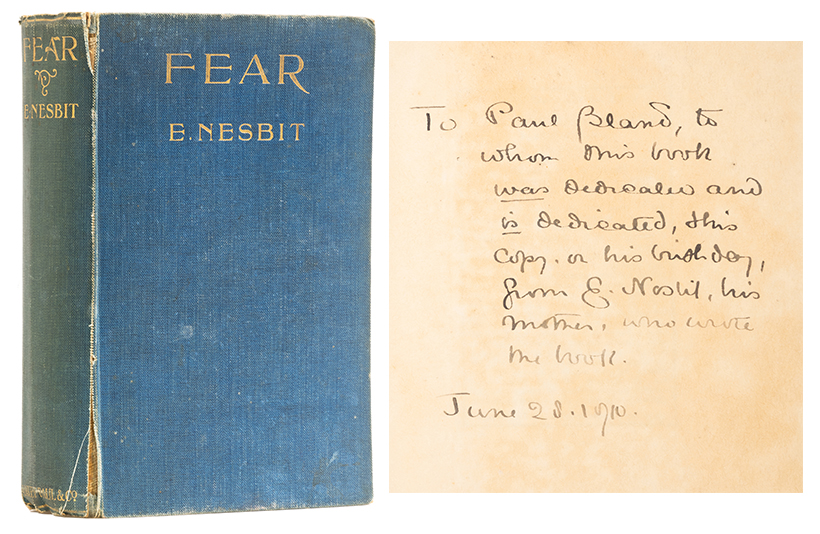 FEAR
E. NESBIT
& Co
FEAR
E. NESBIT
To Paul Bland, to
whom this book
was dedicated and
is dedicated, this
copy. on his birthday,
from E. Nesbit, his
mother, who wrote
the book.
June 28. 1910.